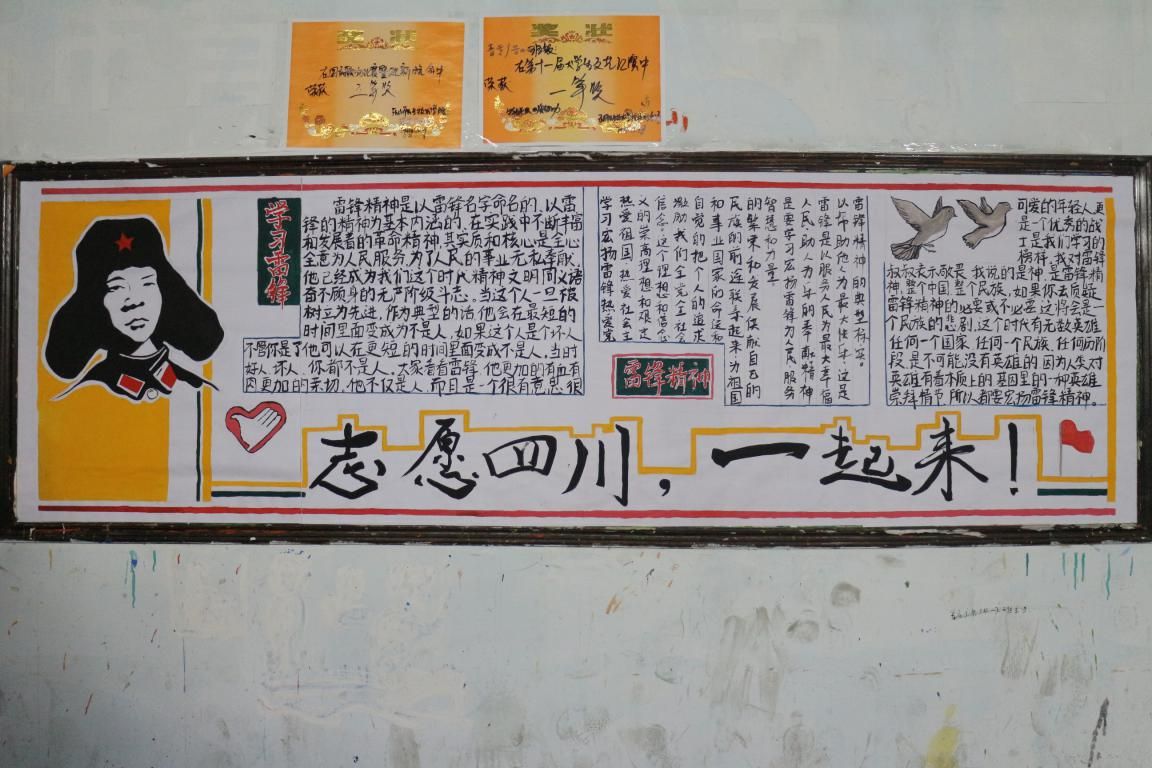 奖状
荣获
三等奖
奖状
荣获
一等奖
学习雷锋
雷锋精神是以雷锋名字命名的,以雷
锋的精神为基本内涵的,在实践中不断丰富
和发展着的革命精神,其实质和核心是全心
全意为人民服务,为了人民的事业无私奉献,
他已经成为我们这个时代精神文明同义语
奋不顾身的无产阶级斗志。当这个人一旦被
树立为先进,作为典型的话,他会在最短的
时间里面变成不是人,如果这个人是个坏人
不管你是了他可以在更短的时间里面变成不是人,当时
好人、坏人、你都不是人、大家看看雷锋、他更加的有血有
肉更加的亲切,他不仅是人,而且是一个很有意思、很
自觉的把个人的追求
和事业国家的命运和
民族的前途联系起来为祖国
智慧和力量
是要学习宏扬雷锋为人民服务
人民,助人为乐的奉献精神
雷锋是以服务人民为最大幸福
以帮助他人为最大快乐,这是
雷锋精神的典型标签。
激励我们全党全社会
信念、这个理想和信念
义的崇高理想和坚定
热爱祖国、热爱社会主
学习宏扬雷锋热爱党
雷锋精神
可爱的年轻人更
是一个优秀的战
士,是我们学习的
榜样,我对雷锋
叔叔表示敬意,我说的是神是雷锋精
神,整个中国整个民族,如果你去质疑
雷锋精神的必要或不必要这将会是一
个民族的悲剧,这个时代有无数英雄
任何一个国家、任何一个民族、任何历阶
段是不可能没有英雄的,因为人类对
英雄有着本质上的基因里的一种英雄
崇拜情节,所以都要宏扬雷锋精神。
志愿四川,一起来!